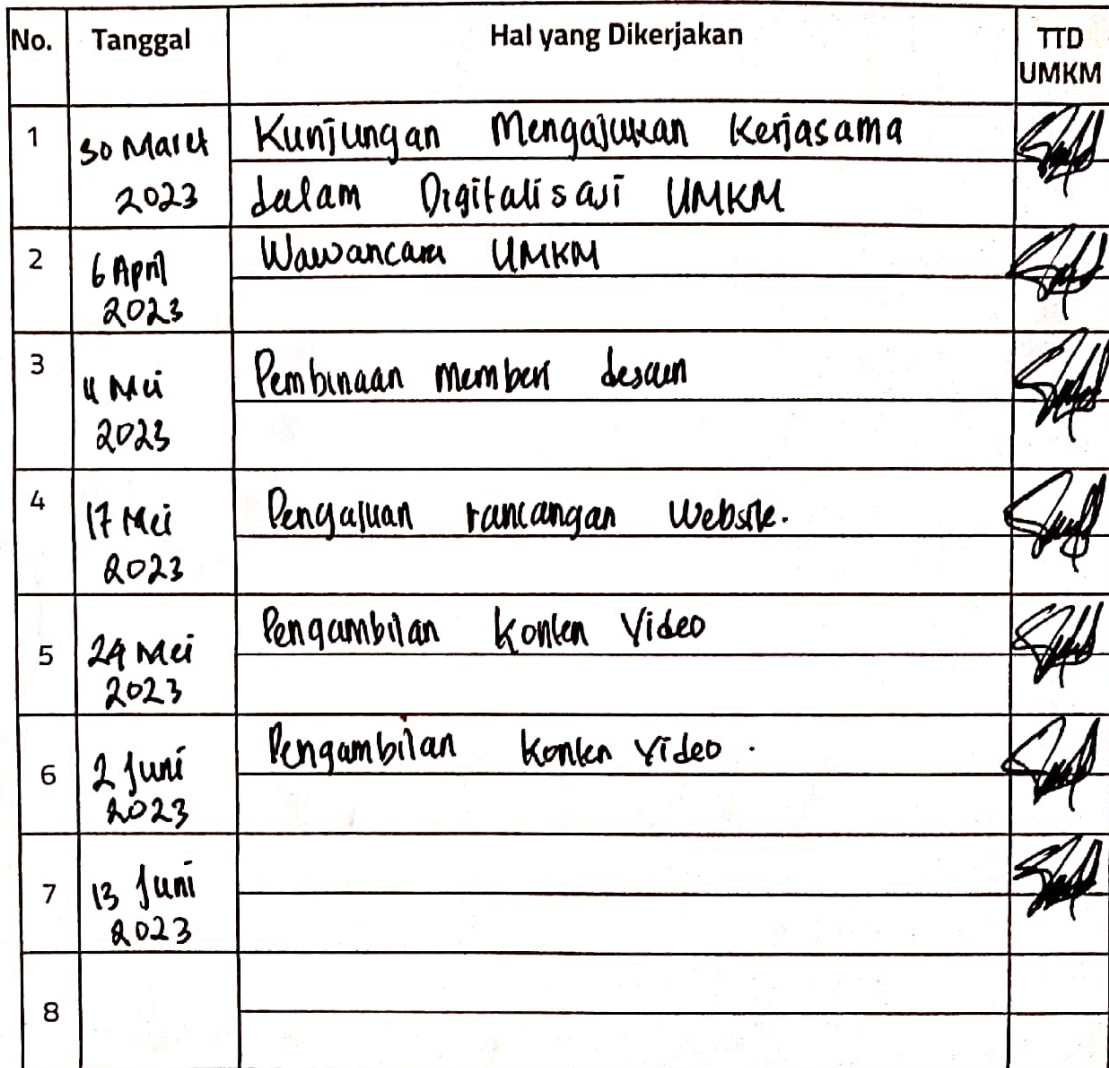 No. Tanggal Hal yang Dikerjakan TTD
UMKM
1 30 Maret Kunjungan Mengajukan Kerjasama
2023 dalam Digitalisasi UMKM
2 6 April Wawancara UMKM
2023
3 4 Mei Pembinaan memberi desain
2023
4 17 Mei Pengajuan rancangan Website.
2023
5 24 Mei Pengambilan Konten Video
2023
6 2 Juni Pengambilan Konten Video.
2023
7 13 Juni
2023
8